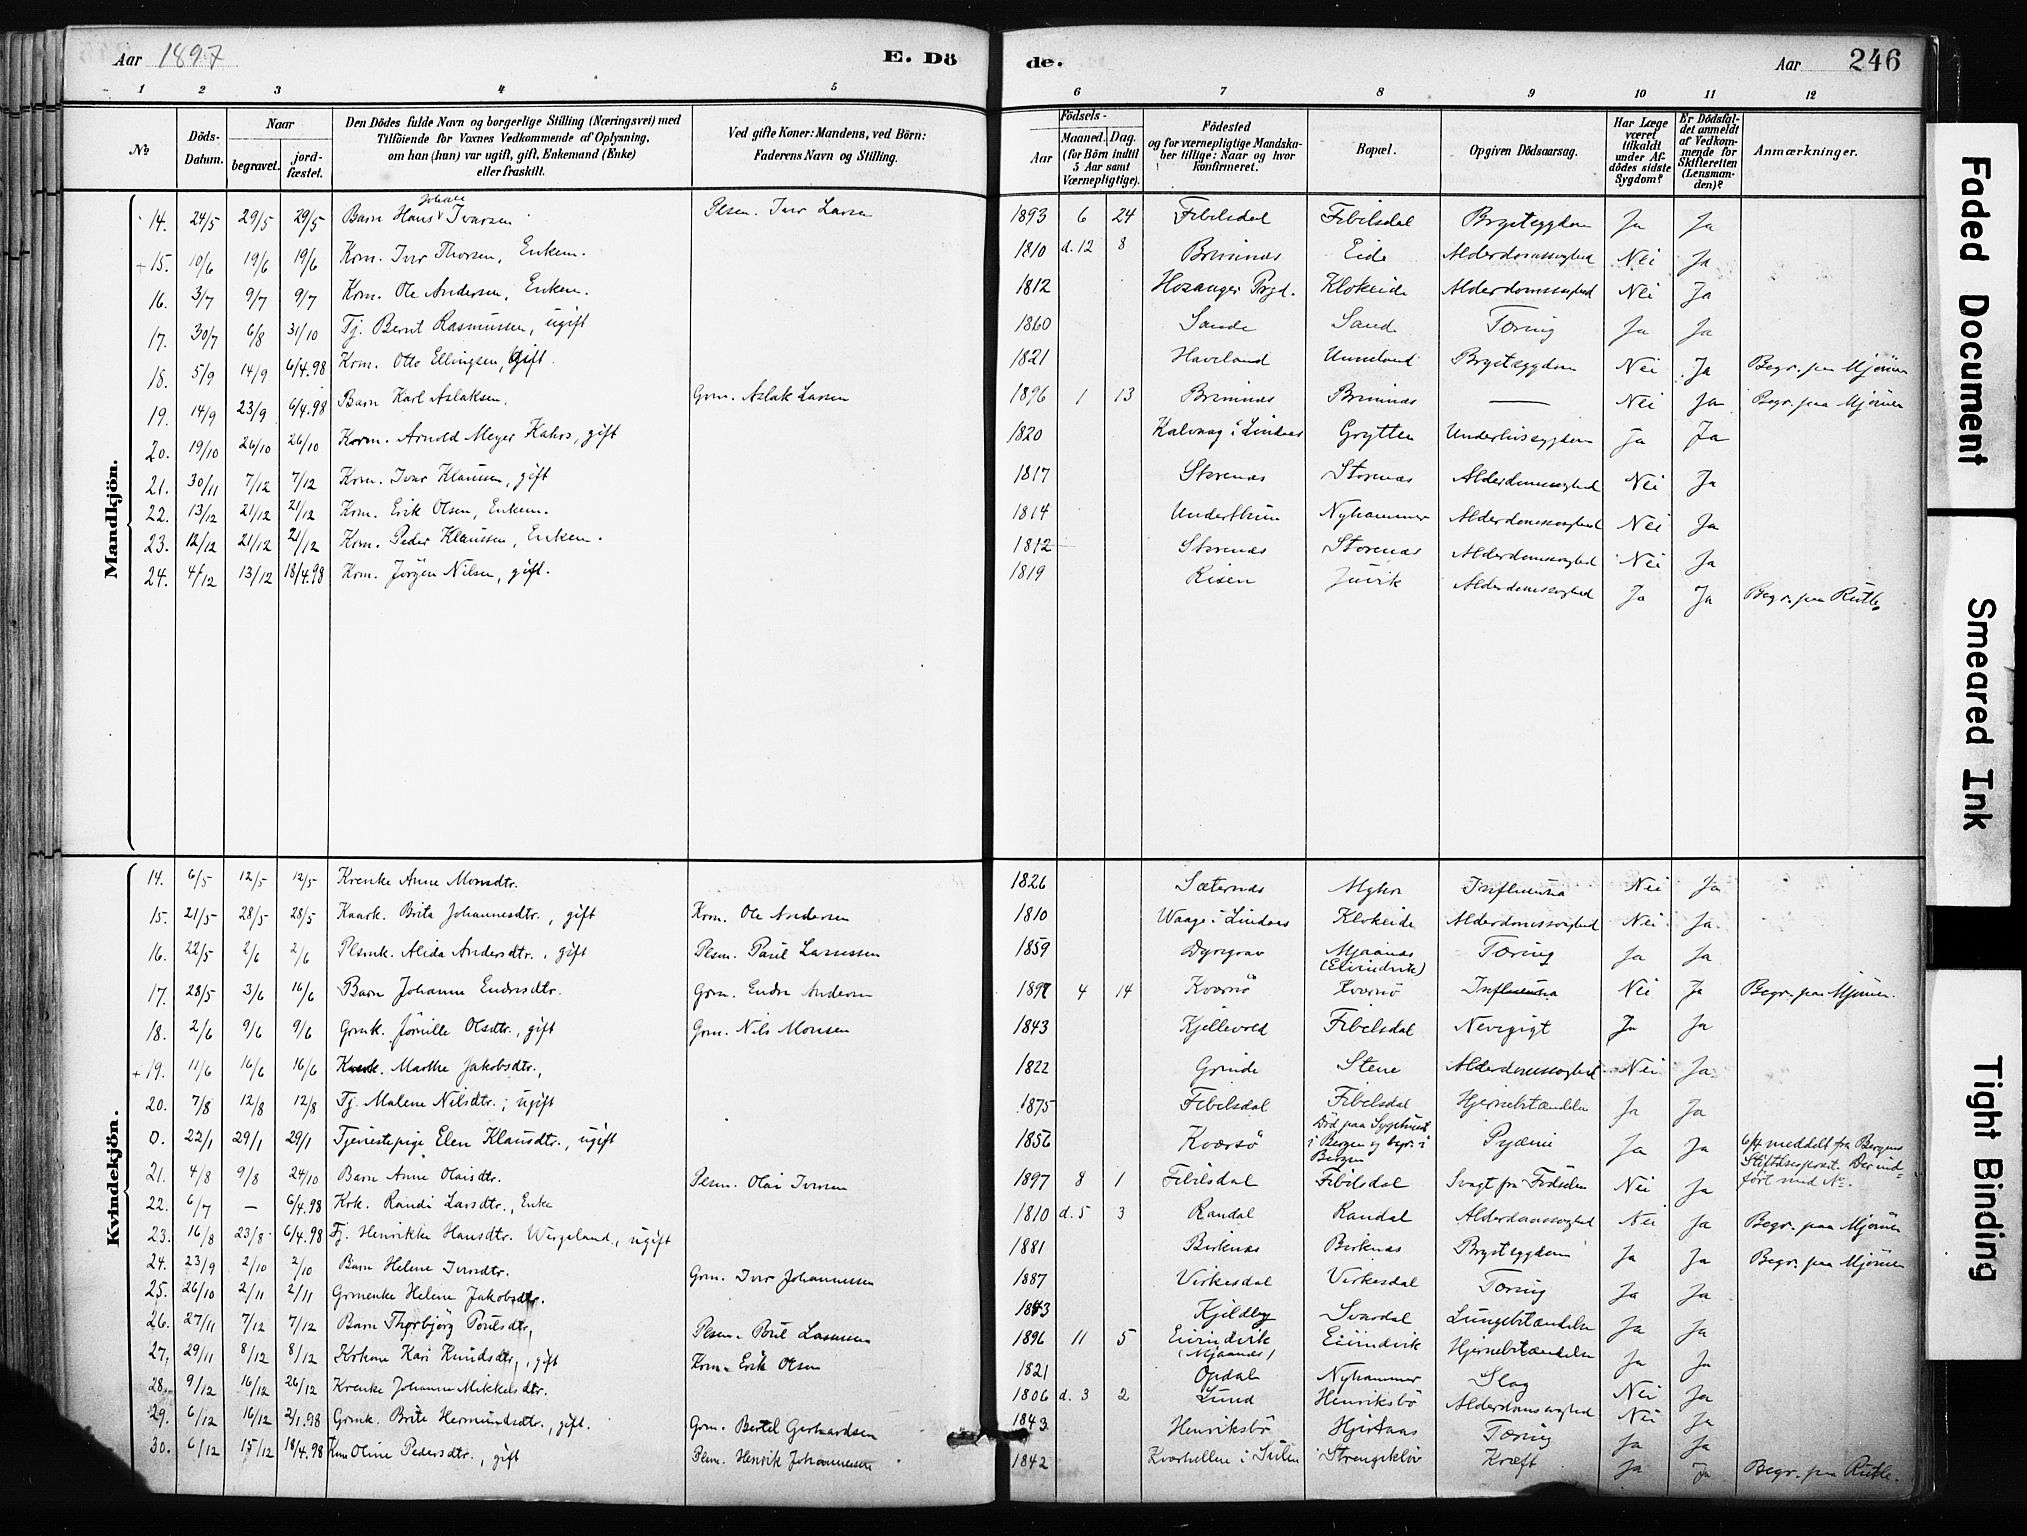 Aar 1897 E. Dö de. Aar 246
1 2 3 4 5 6 7 8 9 10 11 12
№ Döds-Datum. Naar begravet. jord-fæstet. Den Dödes fulde Navn og borgerlige Stilling (Næringsvei) med Tilföiende for Voxnes Vedkommende af Oplysning, om han (hun) var ugift, gift, Enkemand (Enke) eller fraskilt. Ved gifte Koner: Mandens, ved Börn: Faderens Navn og Stilling. Födsels- Aar Maaned. Dag. (for Börn indtil 5 Aar samt Værnepligtige). Födested og for værnepligtige Mandskaber tillige: Naar og hvor konfirmeret. Bopæl. Opgiven Dödsaarsag. Har Læge været tilkaldt under Afdödes sidste Sygdom? Er Dödsfaldet anmeldt af Vedkommende for Skifteretten (Lensmanden)? Anmærkninger.
Mandkjön.
14. 24/5 29/5 29/5 Barn Hans Johan Ivarsen Plsm. Ivar Larsen 1893 6 24 Fibelsdal Fibelsdal Brystsygdom Ja Ja
+15. 10/6 19/6 19/6 Krm. Ivar Thorsen, Enkem. 1810 d. 12 8 Brimnæs Eide Alderdomssvaghed Nei Ja
16. 3/7 9/7 9/7 Krm. Ole Andersen, Enkem. 1812 Hosanger Prgd. Klokeide Alderdomssvaghed Nei Ja
17. 30/7 6/8 31/10 Tj. Bernt Rasmussen, ugift 1860 Sande Sande Tæring Ja Ja
18. 5/9 14/9 6/4.98 Krm. Otto Ellingsen, gift. 1821 Haveland Unneland Brystsygdom Nei Ja Begr. paa Mjømen
19. 14/9 23/9 6/4.98 Barn Karl Aslaksen. Grm. Aslak Larsen 1896 1 13 Brimnæs Brimnæs — Nei Ja Begr. paa Mjømen
20. 19/10 26/10 26/10 Korm. Arnold Meyer Kahrs, gift 1820 Kalvaag i Lindaas Grytten Underlivssygdom Ja Ja
21. 30/11 7/12 7/12 Krm. Ivar Klaussen, gift 1817 Storenæs Storenæs Alderdomssvaghed Nei Ja
22. 13/12 21/12 21/12 Krm. Erik Olsen, Enkem. 1814 Underthun Nyhammer Alderdomssvaghed Nei Ja
23. 12/12 21/12 21/12 Krm. Peder Klaussen, Enkem. 1812 Storenæs Storenæs Alderdomssvaghed Nei Ja
24. 4/12 13/12 18/4.98 Krm. Jørgen Nilsen, gift. 1819 Risen Juvik Alderdomssvaghed Ja Ja Begr. paa Rutle
Kvindekjön.
14. 6/5 12/5 12/5 Krenke Anne Monsdtr. 1826 Sæternæs Mykor Influensa Nei Ja
15. 21/5 28/5 28/5 Kaark. Brita Johannesdtr., gift Krm. Ole Andersen 1810 Waage i Lindaas Klokeide Alderdomssvaghed Nei Ja
16. 22/5 2/6 2/6 Plsmk. Alida Andersdtr., gift Plsm. Paul Larsen 1859 Dyrgrav Mjaanæs (Eivindvik) Tæring Ja Ja
17. 28/5 3/6 16/6 Barn Johanne Endresdtr. Grm. Endre Andersen 1897 4 14 Kversø Kversø Influensa Nei Ja Begr. paa Mjømen.
18. 2/6 9/6 9/6 Grmk. Jørnille Olsdtr., gift Grm. Nils Monsen 1843 Kjellevold Fibelsdal Nevegigt Ja Ja
+19. 11/6 16/6 16/6 Marthe Jakobsdtr., 1822 Grinde Stene Alderdomssvaghed Nei Ja
20. 7/8 12/8 12/8 Tj. Malene Nilsdtr., ugift 1875 Fibelsdal Fibelsdal Hjernebetændelse Ja Ja
0. 22/1 29/1 29/1 Tjenestepige Elen Klausdtr., ugift 1856 Kversø Død paa Sygehuset i Bergen og begr. i Bergen Pyæmi Ja Ja 6/4 meddelt fra Bergens Stiftshospral. Der indført med №.
21. 4/8 9/8 24/10 Barn Anne Olaisdtr. Plsm. Olai Iversen 1897 8 1 Fibelsdal Fibelsdal Svagt fra Fødselen Nei Ja
22. 6/7 — 6/4.98 Krk. Randi Larsdtr., Enke 1810 d. 5 3 Randal Randal Alderdomssvaghed Nei Ja Begr. paa Mjømen
23. 16/8 23/8 6/4.98 Tj. Henrikke Hansdtr. Wergeland, ugift 1881 Birknæs Birknæs Brystsygdom Ja Ja Begr. paa Mjømen
24. 23/9 2/10 2/10 Barn Helene Ivarsdtr. Grm. Ivar Johannessen 1887 Virkesdal Virkesdal Tæring Ja Ja
25. 26/10 2/11 2/11 Grmenke Helene Jakobsdtr. 1843 Kjilday Svardal Lungebetændelse Ja Ja
26. 27/11 7/12 7/12 Barn Thorbjørg Poulsdtr, Plsm. Poul Larsen 1896 11 5 Eivindvik (Mjaanæs) Eivindvik Hjernebetændelse Ja Ja
27. 29/11 8/12 8/12 Krkone Kari Knudsdtr, gift Krm. Erik Olsen 1821 Opdal Nyhammer Slag Nei Ja
28. 9/12 16/12 26/12 Krenke Johanne Mikkelsdtr. 1806 d. 3 2 Lund Henriksbø Alderdomssvaghed Nei Ja
29. 6/12 16/12 2/1.98 Grmk. Brite Hermundsdtr., gift. Grm. Bertel Gerhardsen 1843 Henriksbø Hjertaas Tæring Ja Ja
30. 6/12 15/12 18/4.98 Oline Pedersdtr., gift Plsm. Henrik Johannessen 1842 Kvarhellen i Sulen Strengekløv Kræft Ja Ja Begr. paa Rutle.
Faded Document
Smeared Ink
Tight Binding